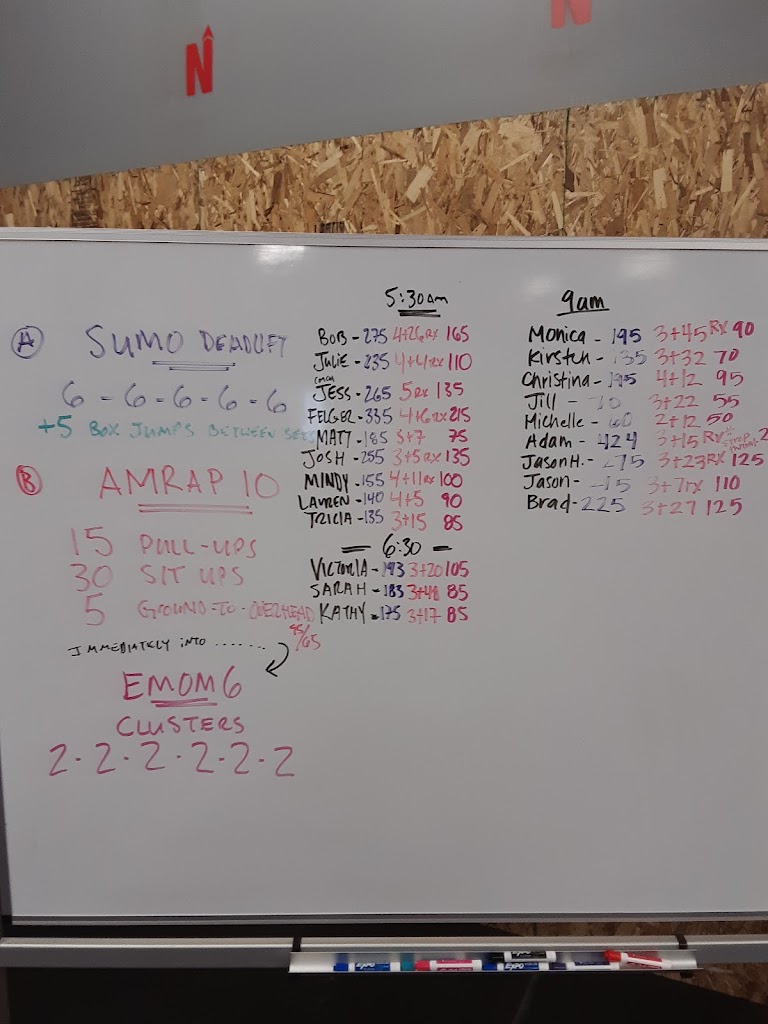 N
N
A SUMO DEADLIFT
6 - 6 - 6 - 6 - 6
+5 BOX JUMPS BETWEEN SETS
B AMRAP 10
15 PULL-UPS
30 SIT UPS
5 GROUND-TO-OVERHEAD
95/65
IMMEDIATELY INTO .......
EMOM 6
CLUSTERS
2 - 2 - 2 - 2 - 2 - 2
5:30am
BOB - 275 4+26 RX 165
JULIE - 235 4+4 RX 110
COACH
JESS - 265 5 RX 135
FELGER - 335 4+6 RX 215
MATT - 185 3+7 75
JOSH - 255 3+5 RX 135
MINDY - 155 4+11 RX 100
LAUREN - 140 4+5 90
TRICIA - 135 3+15 85
6:30
VICTORIA - 193 3+20 105
SARAH - 183 3+48 85
KATHY - 175 3+17 85
9am
Monica - 195 3+45 RX 90
Kirsten - 135 3+32 70
Christina - 195 4+12 95
Jill - 3+22 55
Michelle - 2+12 50
Adam - 424 3+15 RX
Jason H. - 275 3+23 RX 125
Jason - 3+7 rx 110
Brad - 225 3+27 125
EXPO
EXPO
EXPO